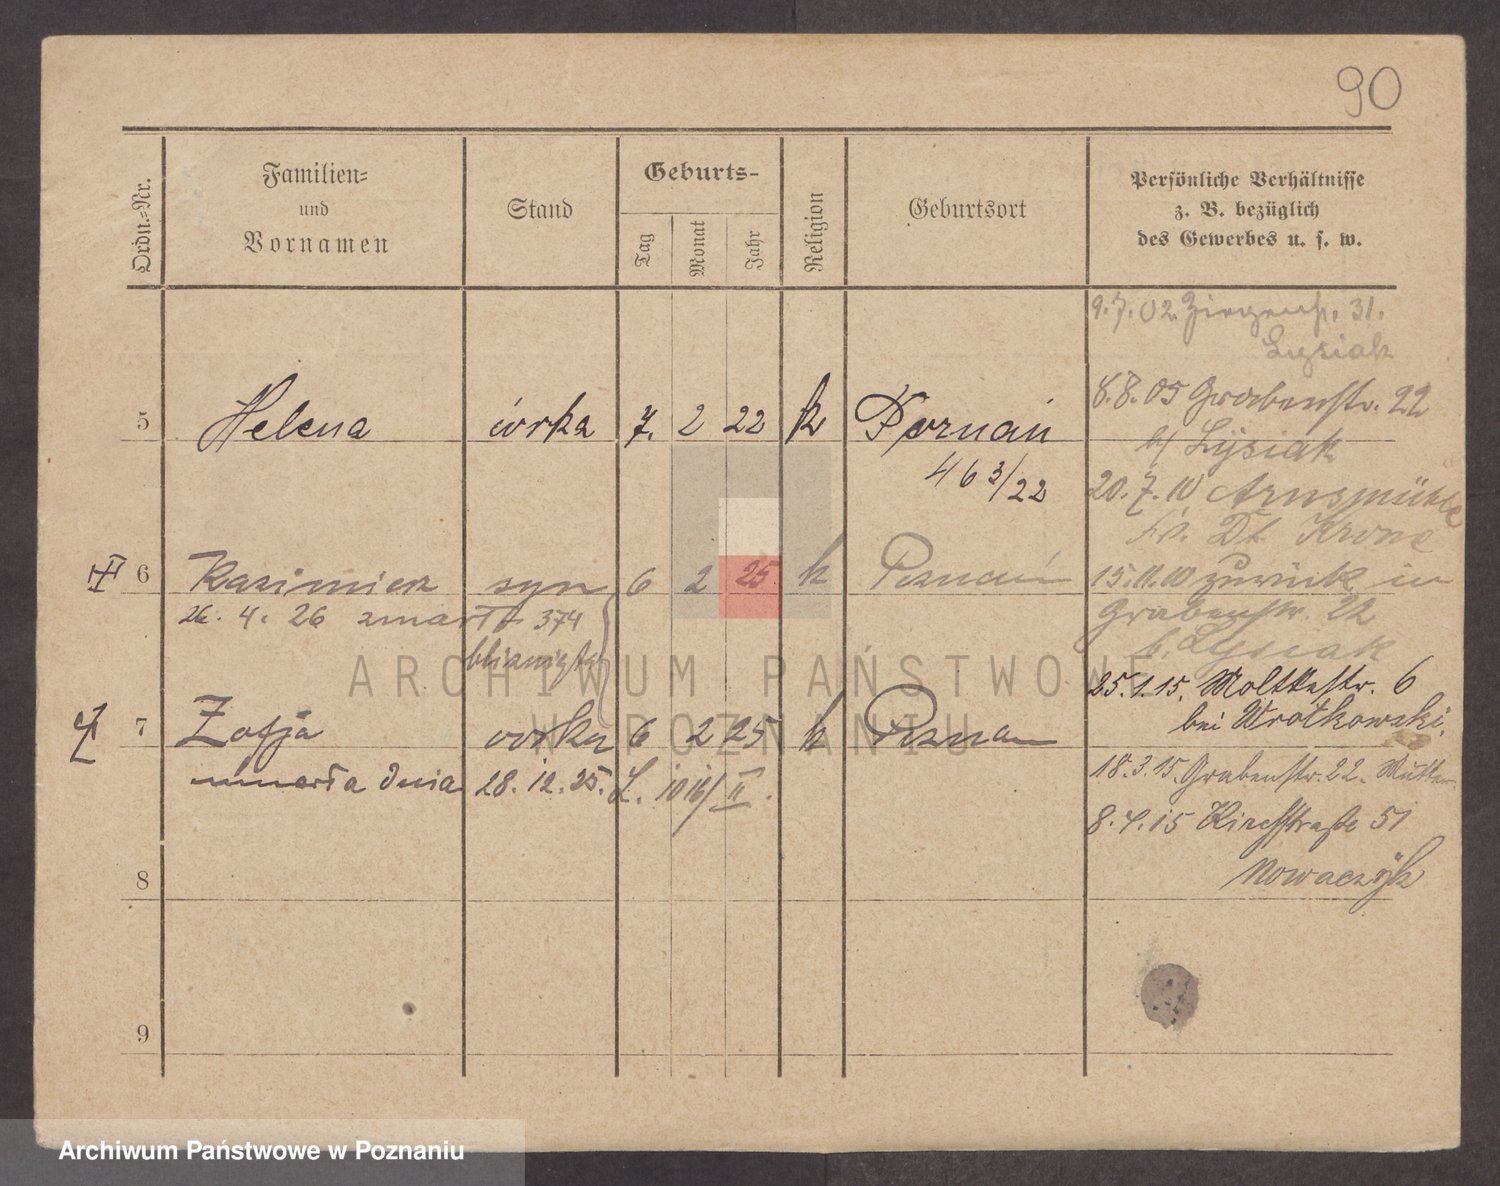 90
Ordn.-Nr.
Familien-
und
Vornamen
Stand
Geburts-
Tag
Monat
Jahr
Religion
Geburtsort
Persönliche Verhältnisse
z. B. bezüglich
des Gewerbes u. s. w.
9.7.02 31.
Lysiak
8.8.05 Grabenstr. 22
b/ Lysiak
5 Helena córka 7. 2 22 k Poznań
46 3/22
20.7.10 Arnsmühle
Dt. Krone
6 Kazimierz syn 6 2 25 k Poznań
15.11.10 zurück in
26. 4. 26 zmarł 374
Grabenstr. 22
b. Lysiak
bliźnięta
25.1.15. Moltkestr. 6
bei Wrotkowski.
7 Zofja córka 6 2 25 k Poznań
umarła dnia 28. 12. 25. L. II.
18.3.15. Grabenstr. 22. Mutter
8.4.15 Kirchstraße 51
Nowaczyk
8
9
ARCHIWUM PAŃSTWOWE
W POZNANIU
Archiwum Państwowe w Poznaniu